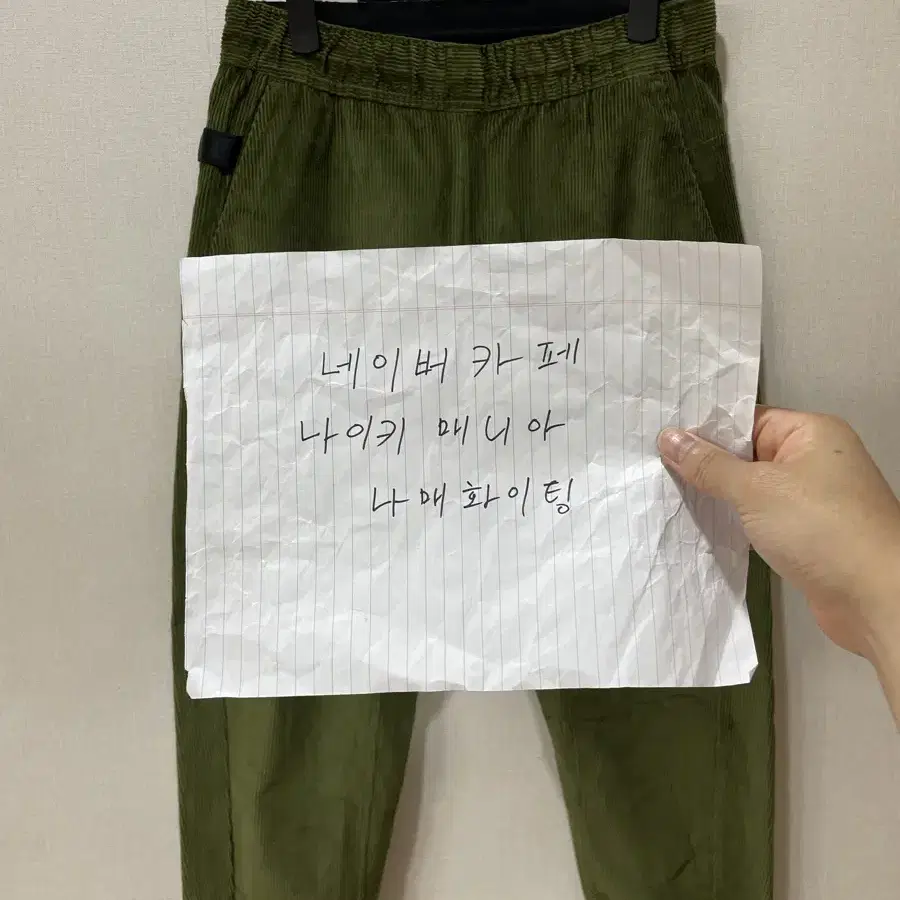 네이버 카페
나이키 매니아
나매화이팅